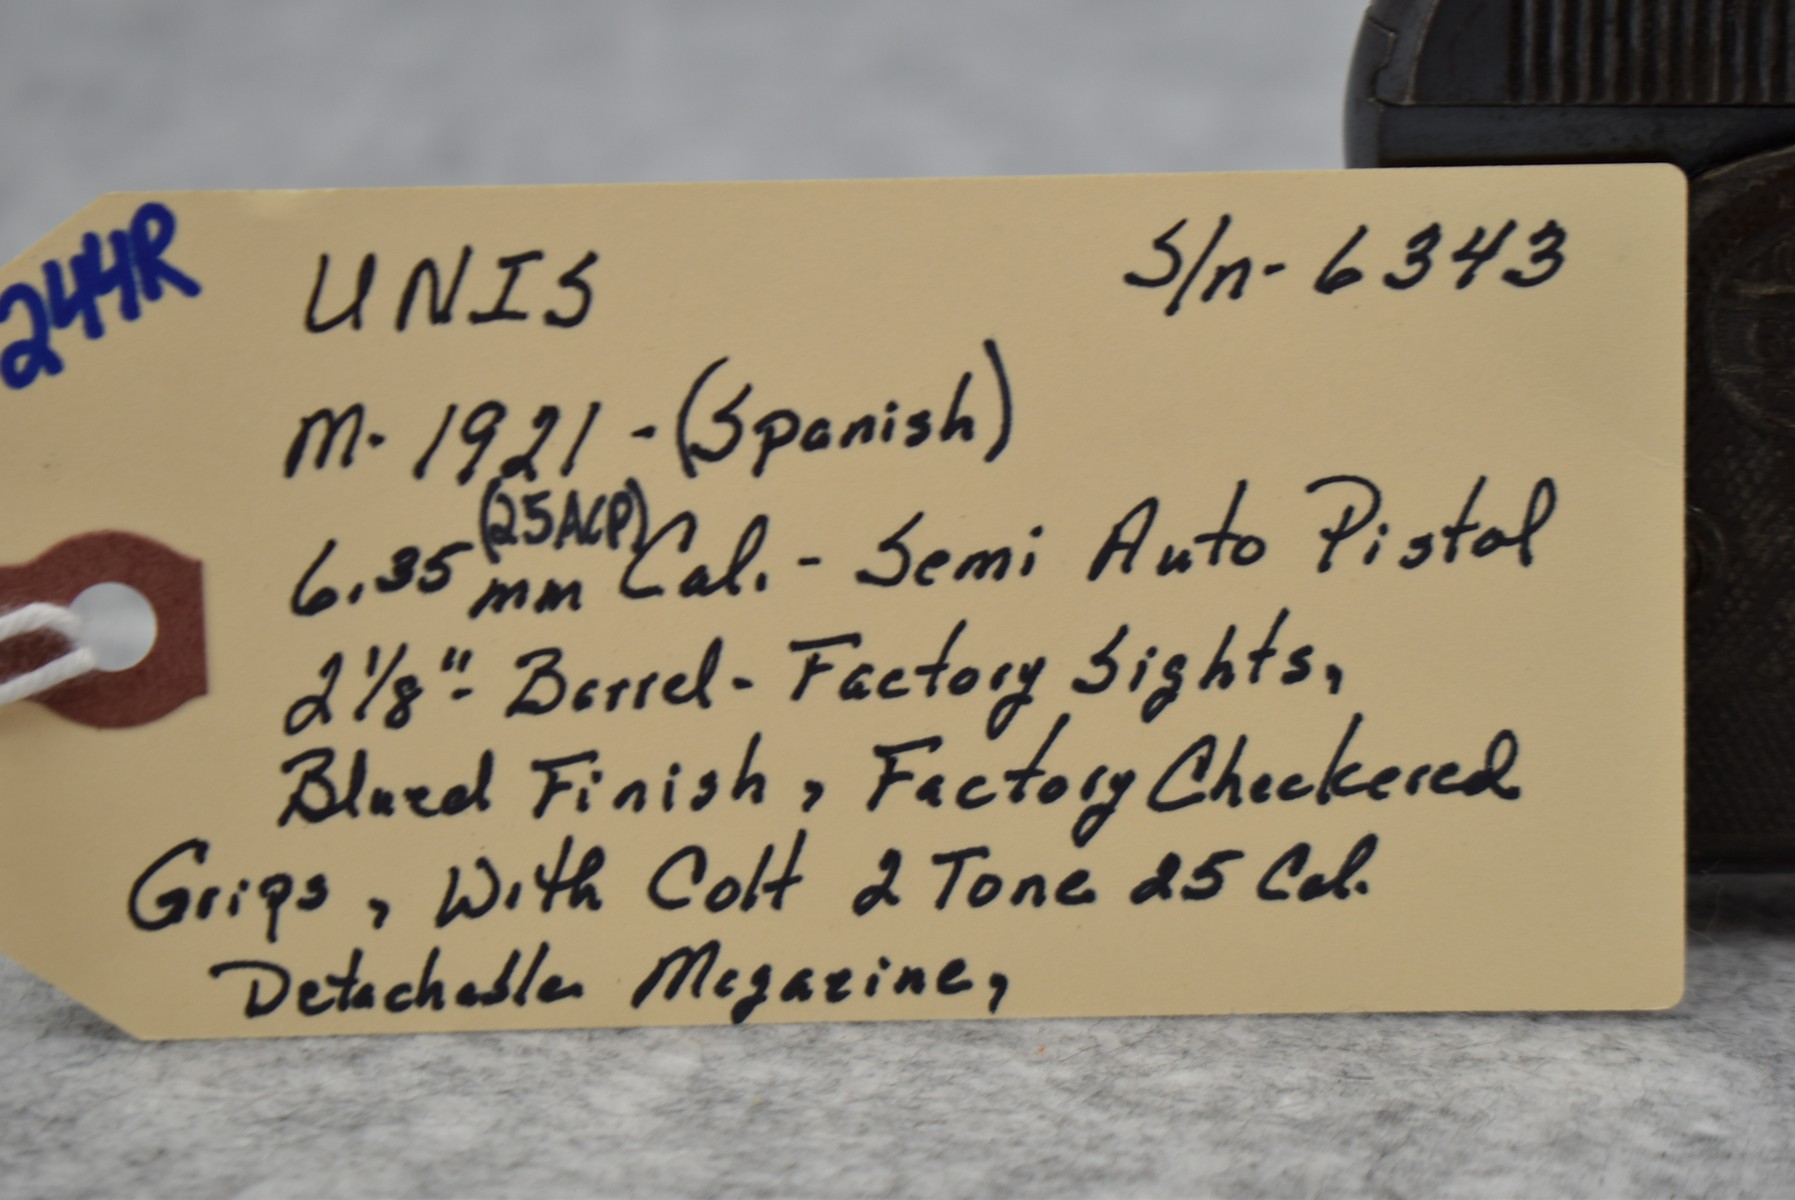 244R
UNIS S/n- 6343
M- 1921 - (Spanish)
(25ACP)
6.35 mm Cal. - Semi Auto Pistol
2 1/8" - Barrel - Factory Sights,
Blued Finish, Factory Checkered
Grips, With Colt 2 Tone 25 Cal.
Detachable Magazine,